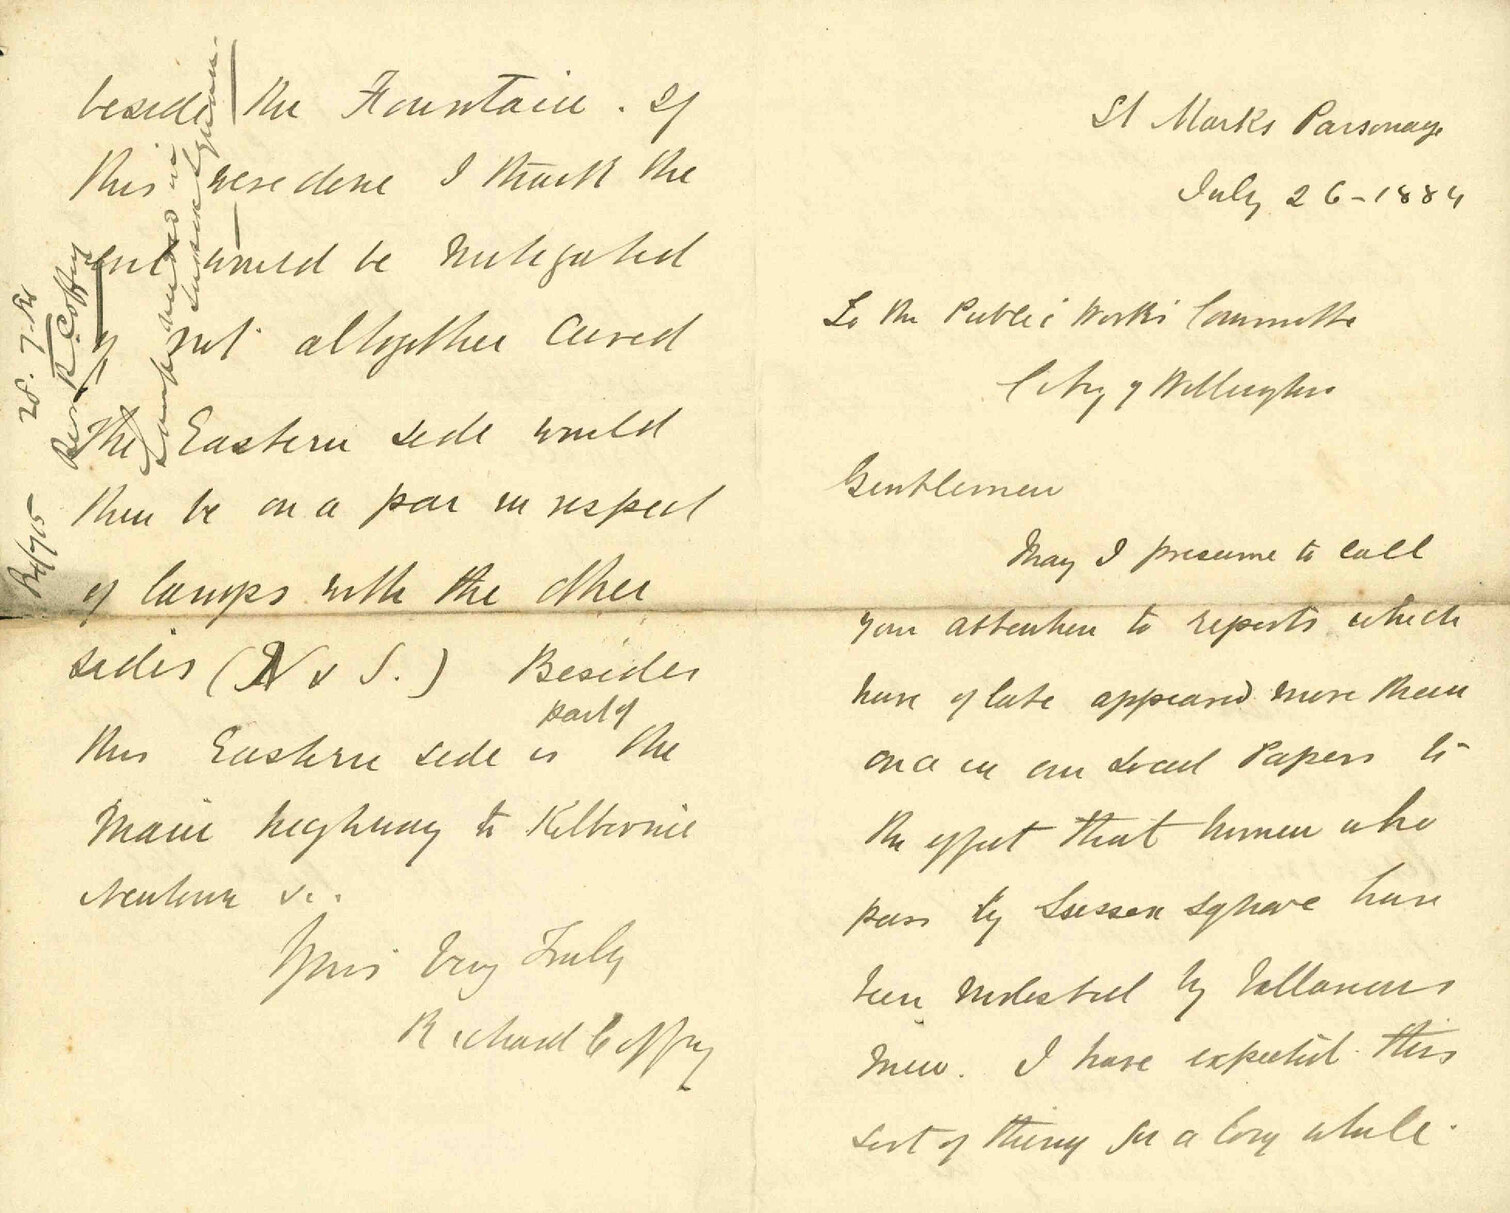 St Marks Parsonage
July 26-1884
To the Public Works Committee
City of Wellington
Gentlemen
May I presume to call
your attention to reports which
have of late appeared more than
once in our Local Papers to
the effect that women who
pass by Sussex Square have
been molested by villanous
men. I have expected this
sort of thing for a long while.
beside the Fountain. If
this were done I think the
evil would be mitigated
if not altogether cured
The Eastern side would
then be on a par in respect
of lamps with the other
sides (N & S.) Besides
this Eastern side is part of the
main highway to Kilbirnie
Newtown &c.
Yours Very Truly
Richard Coffey
84/715
28.7.84
Rev R. Coffey
Lamp in
Sussex Square.